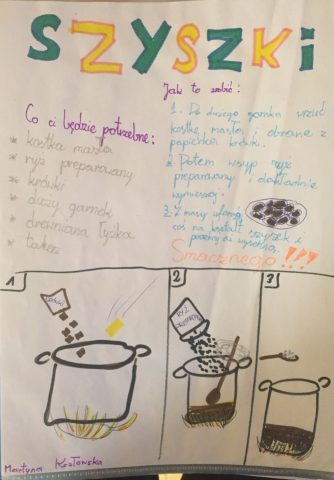 SZYSZKI
Co ci będzie potrzebne:
* kostka masła
* ryż preparowany
* krówki
* duży garnek
* drewniana łyżka
* talerz
Jak to zrobić:
1. Do dużego garnka wrzuć
kostkę masła i obrane z
papierka krówki.
2. Potem wsyp ryż
preparowany i dokładnie
wymieszaj.
3. Z masy uformuj
coś na kształt szyszek i
poczekaj aż wyschną.
Smacznego!!!
1
2
RYŻ
3
Martyna Kozłowska